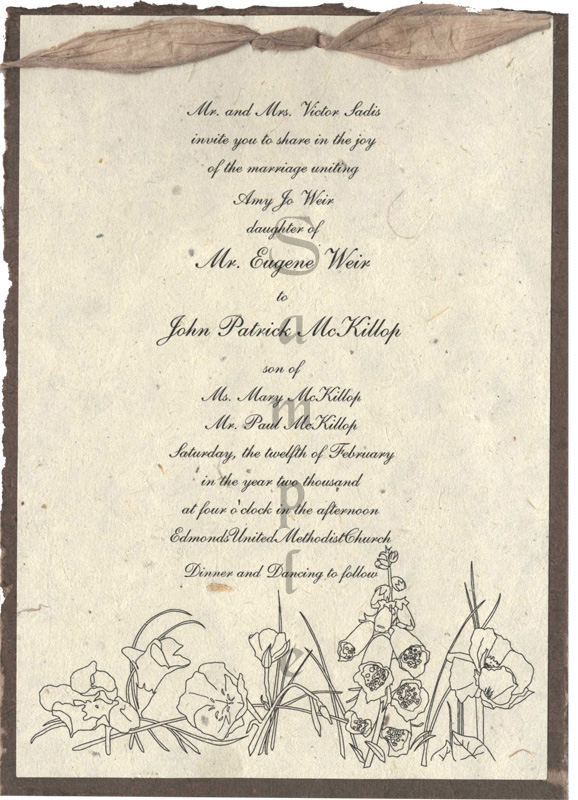 Mr. and Mrs. Victor Sadis
invite you to share in the joy
of the marriage uniting
Amy Jo Weir
daughter of
Mr. Eugene Weir
to
John Patrick McKillop
son of
Ms. Mary McKillop
Mr. Paul McKillop
Saturday, the twelfth of February
in the year two thousand
at four o'clock in the afternoon
EdmondsUnitedMethodistChurch
Dinner and Dancing to follow
Sample